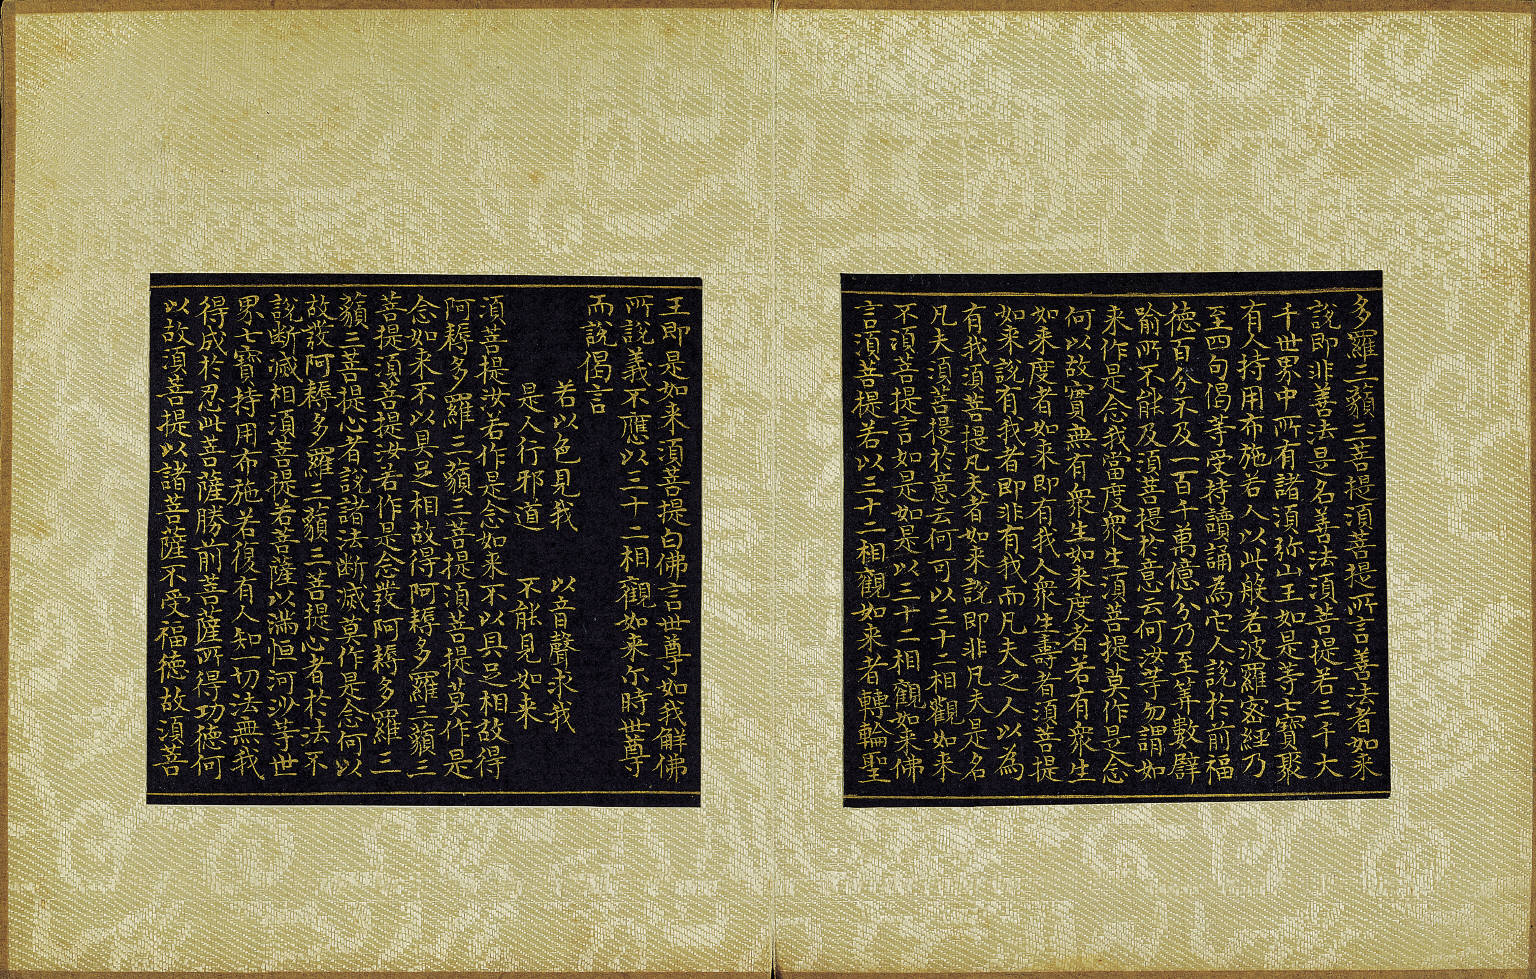 多羅三藐三菩提須菩提所言善法者如来
說即非善法是名善法須菩提若三千大
千世界中所有諸須弥山王如是等七寳聚
有人持用布施若人以此般若波羅蜜經乃
至四句偈等受持讀誦為它人說於前福
徳百分不及一百千萬億分乃至筭數譬
喻所不能及須菩提於意云何汝等勿謂如
来作是念我當度衆生須菩提莫作是念
何以故實無有衆生如来度者若有衆生
如来度者如来即有我人衆生壽者須菩提
如来說有我者即非有我而凡夫之人以為
有我須菩提凡夫者如来說即非凡夫是名
凡夫須菩提於意云何可以三十二相觀如来
不須菩提言如是如是以三十二相觀如来佛
言須菩提若以三十二相觀如来者轉輪聖
王即是如来須菩提白佛言世尊如我解佛
所說義不應以三十二相觀如来尔時世尊
而說偈言
若以色見我　以音聲求我
是人行邪道　不能見如来
須菩提汝若作是念如来不以具足相故得
阿耨多羅三藐三菩提須菩提莫作是
念如来不以具足相故得阿耨多羅三藐三
菩提須菩提汝若作是念發阿耨多羅三
藐三菩提心者說諸法断滅莫作是念何以
故發阿耨多羅三藐三菩提心者於法不
說断滅相須菩提若菩薩以滿恒河沙等世
界七寳持用布施若復有人知一切法無我
得成於忍此菩薩勝前菩薩所得功徳何
以故須菩提以諸菩薩不受福徳故須菩